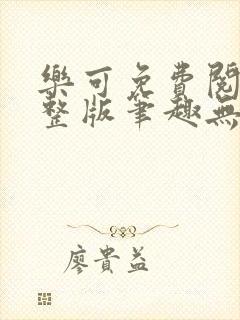 樂可免費閱
整版筆趣無
廖貴益